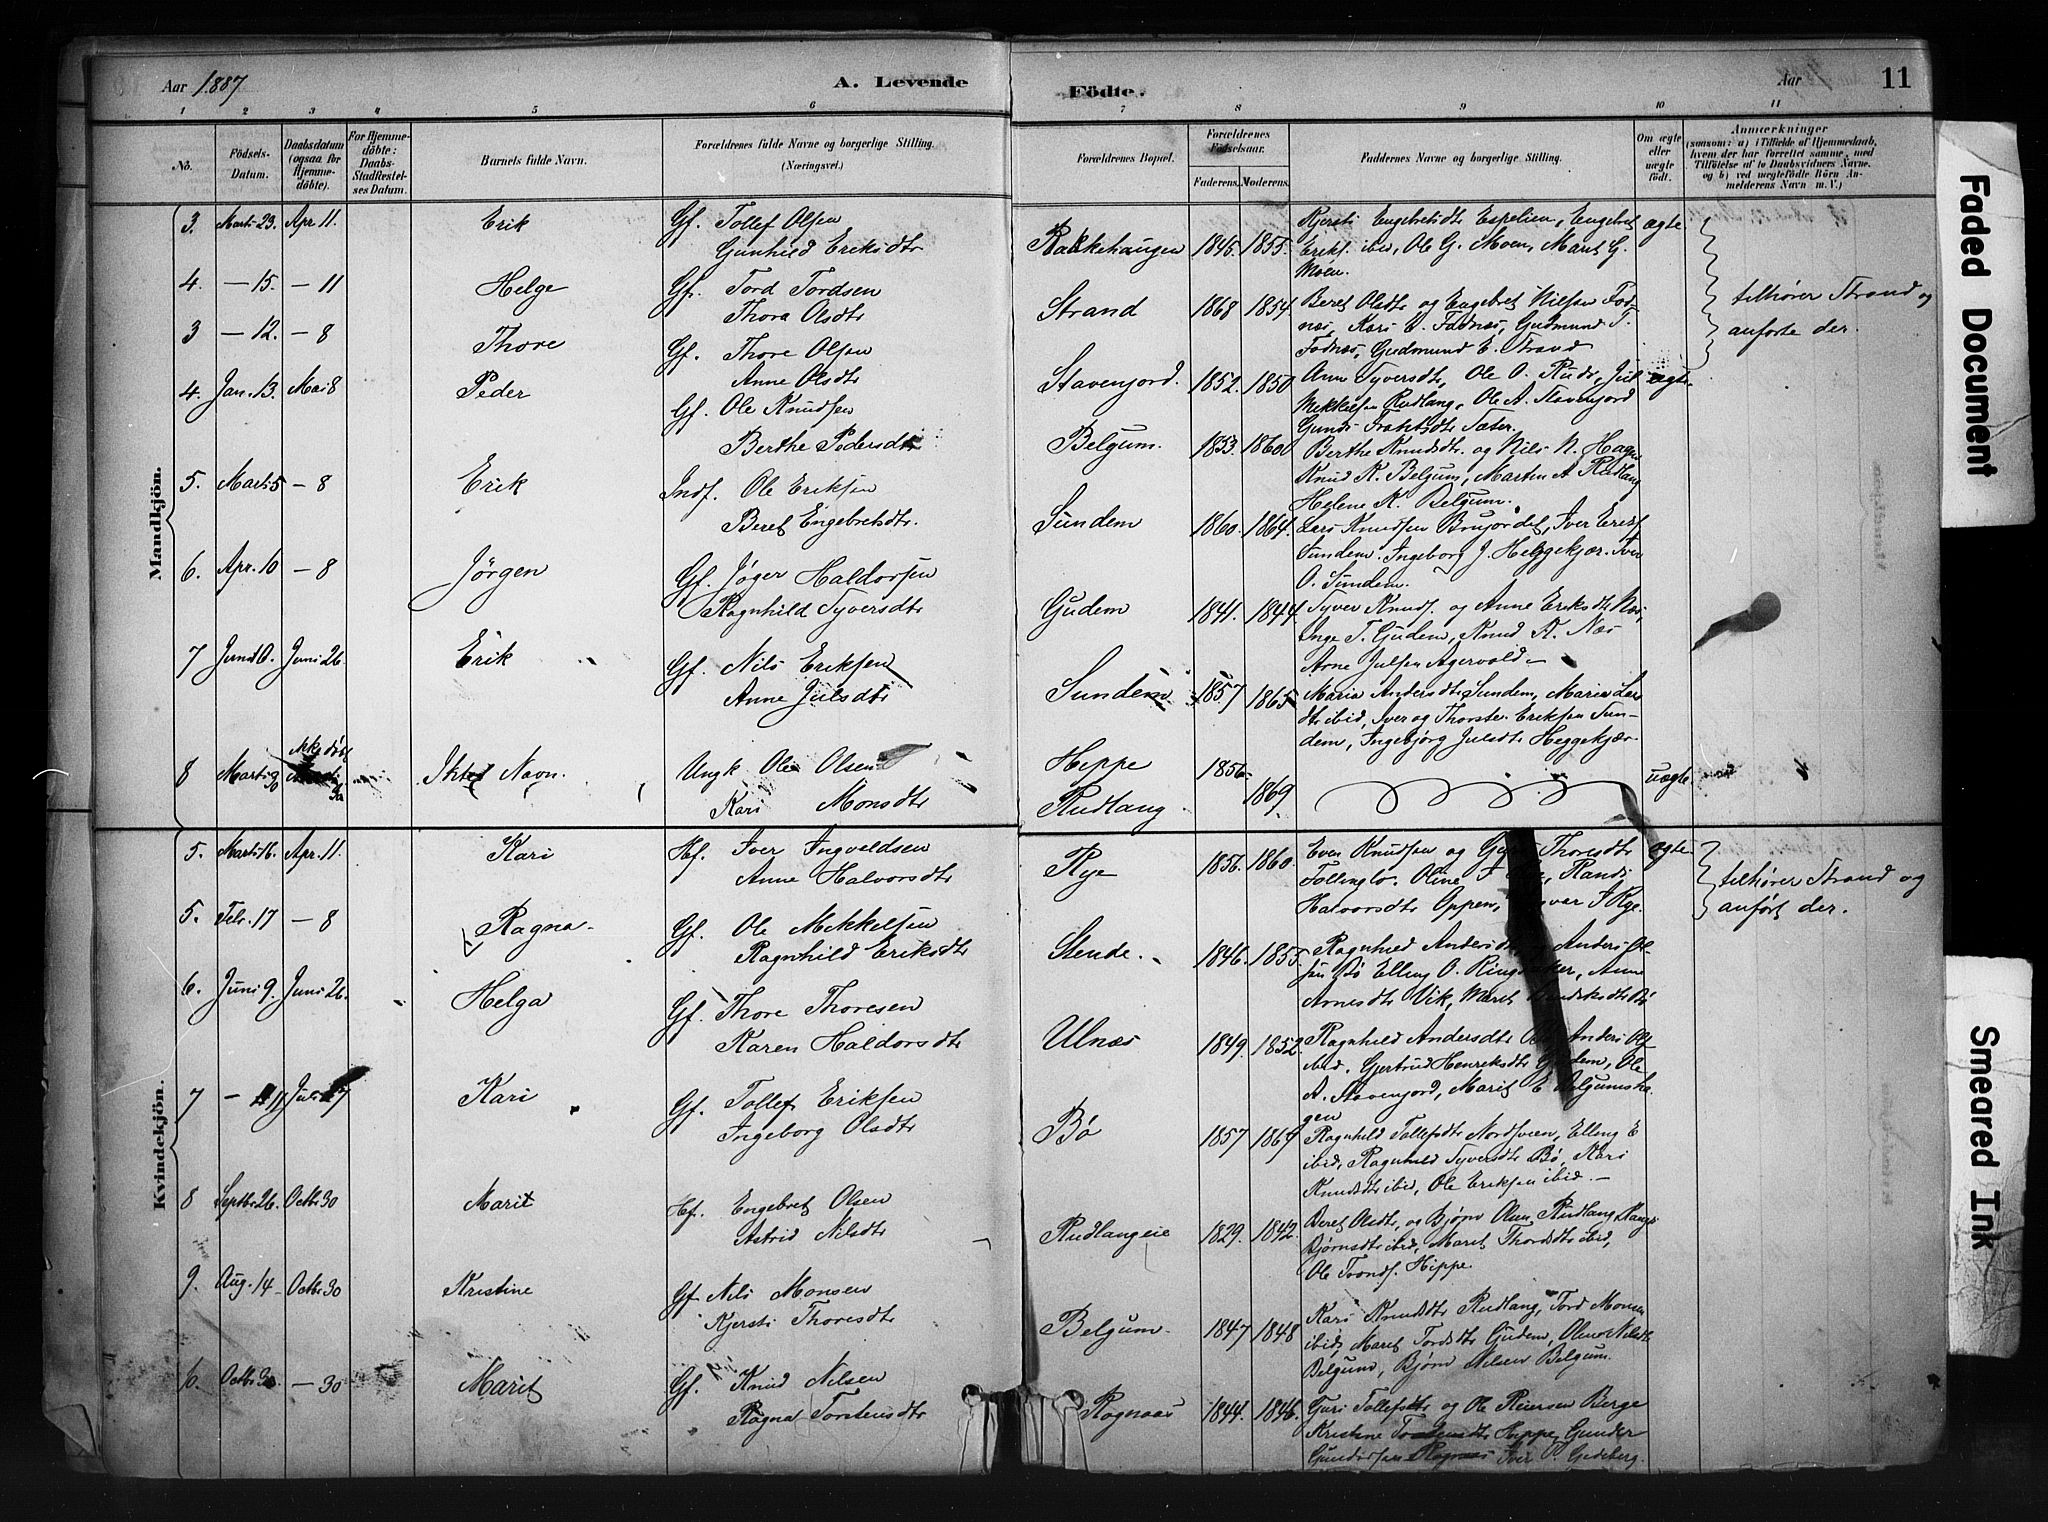 Aar 1887
A. Levende
Födte.
Aar
11
1 2 3 4 5 6 7 8 9 10 11
No.
Födsels-Datum.
Daabsdatum (ogsaa for Hjemmedöbte).
For Hjemmedöbte: Daabs-Stadfestelses Datum.
Barnets fulde Navn.
Forældrenes fulde Navne og borgerlige Stilling. (Næringsvei.)
Forældrenes Bopæl.
Forældrenes Födselsaar.
Faderens. Moderens.
Faddernes Navne og borgerlige Stilling.
Om ægte eller uægte födt.
Anmærkninger (saasom: a) i Tilfælde af Hjemmedaab, hvem der har forrettet samme, med Tilföielse af to Daabsvidners Navne, og b) ved uægtefödte Börn Anmelderens Navn m. V.)
Mandkjön.
3. Marts 23. Apr. 11. Erik Gf. Tollef Olsen
Gunhild Eriksdtr
Bakkehaugen 1845. 1855. Kjersti Engebretsdtr Espelien, Engebret ægte
Eriks. ibid, Ole G. Moen, Marit G.
Moen.
4. — 15. — 11 Helge Gf. Tord Tordsen
Thora Olsdtr
Strand 1868 1854 Beret Olsdtr og Engebret Nilsen Fodnæs, Kari Fodnæs, Gudmund T.
Fodnæs, Gudmund E. Strand
tilhører Strand og
anførte der.
3 — 12. — 8 Thore Gf. Thore Olsen
Anne Olsdtr
Stavenjord. 1852. 1850 Anne Syversdtr, Ole O. Rude, Jul ægte
Mikkelsen Rudlang, Ole A. Stavenjord
4. Jan. 13. Mai 8 Peder Gf. Ole Knudsen
Berthe Pedersdtr
Belgum. 1853. 1860 Berthe Knudsdtr. og Nils N. Hagen
Knud K. Belgum, Marten A Rudlang
Helene K. Belgum.
5. Marts 5 — 8 Erik Indf. Ole Eriksen
Beret Engebretsdtr.
Sundem 1860. 1864. Lars Knudsen Brujordet, Iver Eriks.
Sundem. Ingeborg J. Heggekjær. Iver
O. Sundem.
6. Apr. 10 — 8 Jörgen Gf. Jøger Haldorsen
Ragnhild Syversdtr
Gudem 1841. 1844. Syver Knuds. og Anne Eriksdtr Næs,
Inge T. Gudem, Knud K. Næs
Arne Julsen Agervold —
7 Juni 10. Juni 26. Erik Gf. Nils Eriksen
Anne Julsdtr
Sundem 1857 1865 Maria Andersdtr Sundem, Maria Larsdtr ibid, Iver og Thorste. Eriksen Sundem, Ingebjørg Julsdtr Heggekjær.
8 Marts 30 Ikke døbt Intet Navn. Ungk Ole Olsen
Kari Monsdtr
Hippe 1856. uægte
Rudlang 1869
Kvindekjön.
5. Marts 16. Apr. 11. Kari Hf. Iver Ingvaldsen
Anne Halvorsdtr
Rye 1856. 1860. Even Knudsen og Thoresdtr ægte
Follinglo. Oline Randi
Halvorsdtr Oppen, Rye.
tilhører Strand og
anført der.
5. Febr. 17 — 8 Ragna. Gf. Ole Mikkelsen
Ragnhild Eriksdtr
Stende. 1846. 1855. Ragnhild Andersdtr Anders Olsen Bø Elling O. Ringsaker, Anne
Arnesdtr Vik, Marit Bø
6. Juni 9. Juni 26. Helga Gf. Thore Thoresen
Karen Haldorsdtr
Ulnæs 1849. 1852. Ragnhild Andersdtr Anders Ols
ibid. Gjertrud Henriksdtr Gudem, Ole
A. Stavenjord, Marit E Belgumshagen
7 — 11 Juli 17 Kari Gf. Tollef Eriksen
Ingeborg Olsdtr
Bø 1857 1864 Ragnhild Tollefsdtr Nordsveen, Elling E
ibid, Ragnhild Syversdtr Bø, Kari
Knudsdtr ibid, Ole Eriksen ibid. —
8 Septbr 26. Octbr 30 Marit Hf. Engebret Olsen
Astrid Nilsdtr
Rudlangeie 1829. 1842. Beret Olsdtr, og Bjørn Olsen Rudlang, Rangdi
Bjørnsdtr ibid, Marit Thordsdtr ibid,
Ole Tronds. Hippe.
9. Aug. 14 Octbr 30 Kristine Gf. Nils Monsen
Kjersti Thoresdtr
Belgum. 1847 1848 Kari Knudsdtr Rudlang, Tord Monsen
ibid, Marit Tordsdtr Gudem, Nilsdtr
Belgum, Bjørn Nilsen Belgum.
Octbr — 30 Marit Gf. Knud Nilsen
Ragna Torstensdtr
Rognaas 1844. 1846. Guri Tollefsdtr og Ole Reiersen Berge
Kristine Hippe, Gunder
Gundersen Rognaas Iver Gjeteberg.
Faded Document
Smeared Ink